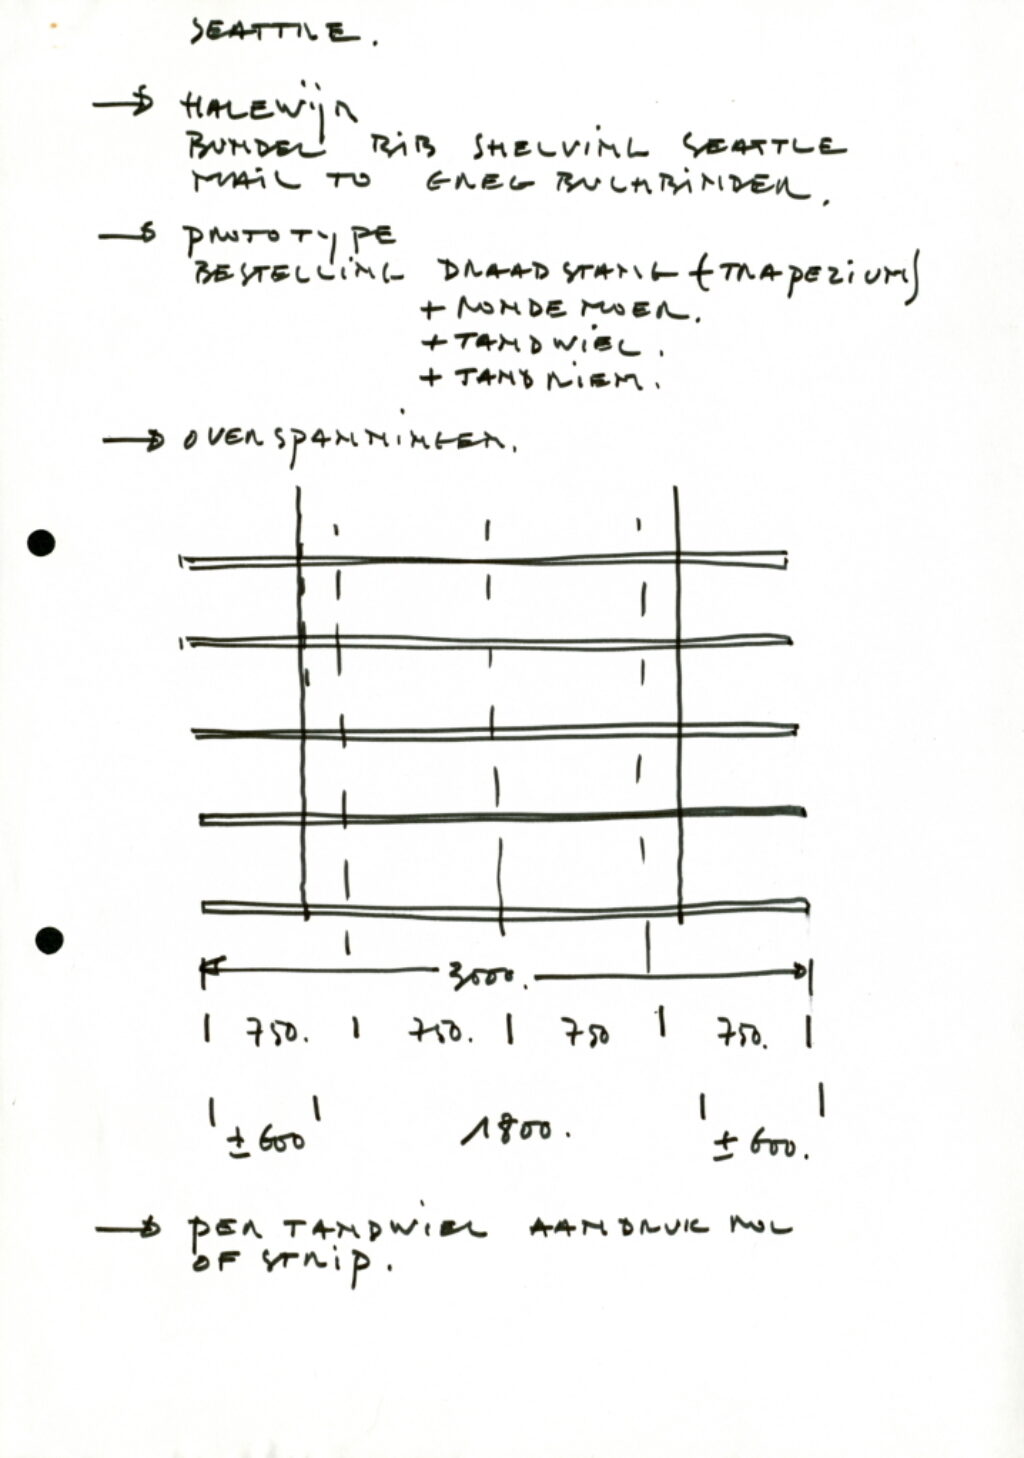 SEATTLE.
→ HALEWIJN
BUNDEL BIB SHELVING SEATTLE
MAIL TO GREG BUCHBINDER.
→ PROTOTYPE
BESTELLING DRAADSTANG (TRAPEZIUM)
+ RONDE MOER.
+ TANDWIEL.
+ TANDRIEM.
→ OVERSPANNINGEN.
3000.
750. 750. 750 750.
± 600 1800. ± 600.
→ PER TANDWIEL AANDRUK ROL
OF STRIP.